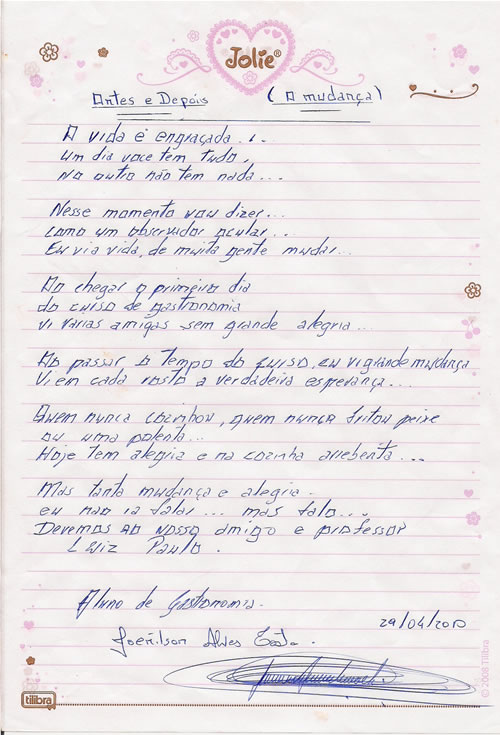 Jolie®
Antes e Depois (A mudança)
A vida é engraçada...
um dia voce tem tudo,
no outro não tem nada...
Nesse momento vou dizer...
como um observador ocular...
Eu via vida, de muita gente mudar...
Ao chegar o primeiro dia
do curso de gastronomia
vi varias amigas sem grande alegria...
Ao passar o tempo do curso, eu vi grande mudança
Vi em cada rosto a verdadeira esperança...
Quem nunca cozinhou, quem nunca fritou peixe
ou uma polenta...
Hoje tem alegria e na cozinha arrebenta...
Mas tanta mudança e alegria.
eu não ia falar... mas falo...
Devemos ao nosso amigo e professor
Luiz Paulo.
Aluno de Gastronomia.
29/04/2010
Joenilson Alves
tilibra
© 2008 Tilibra